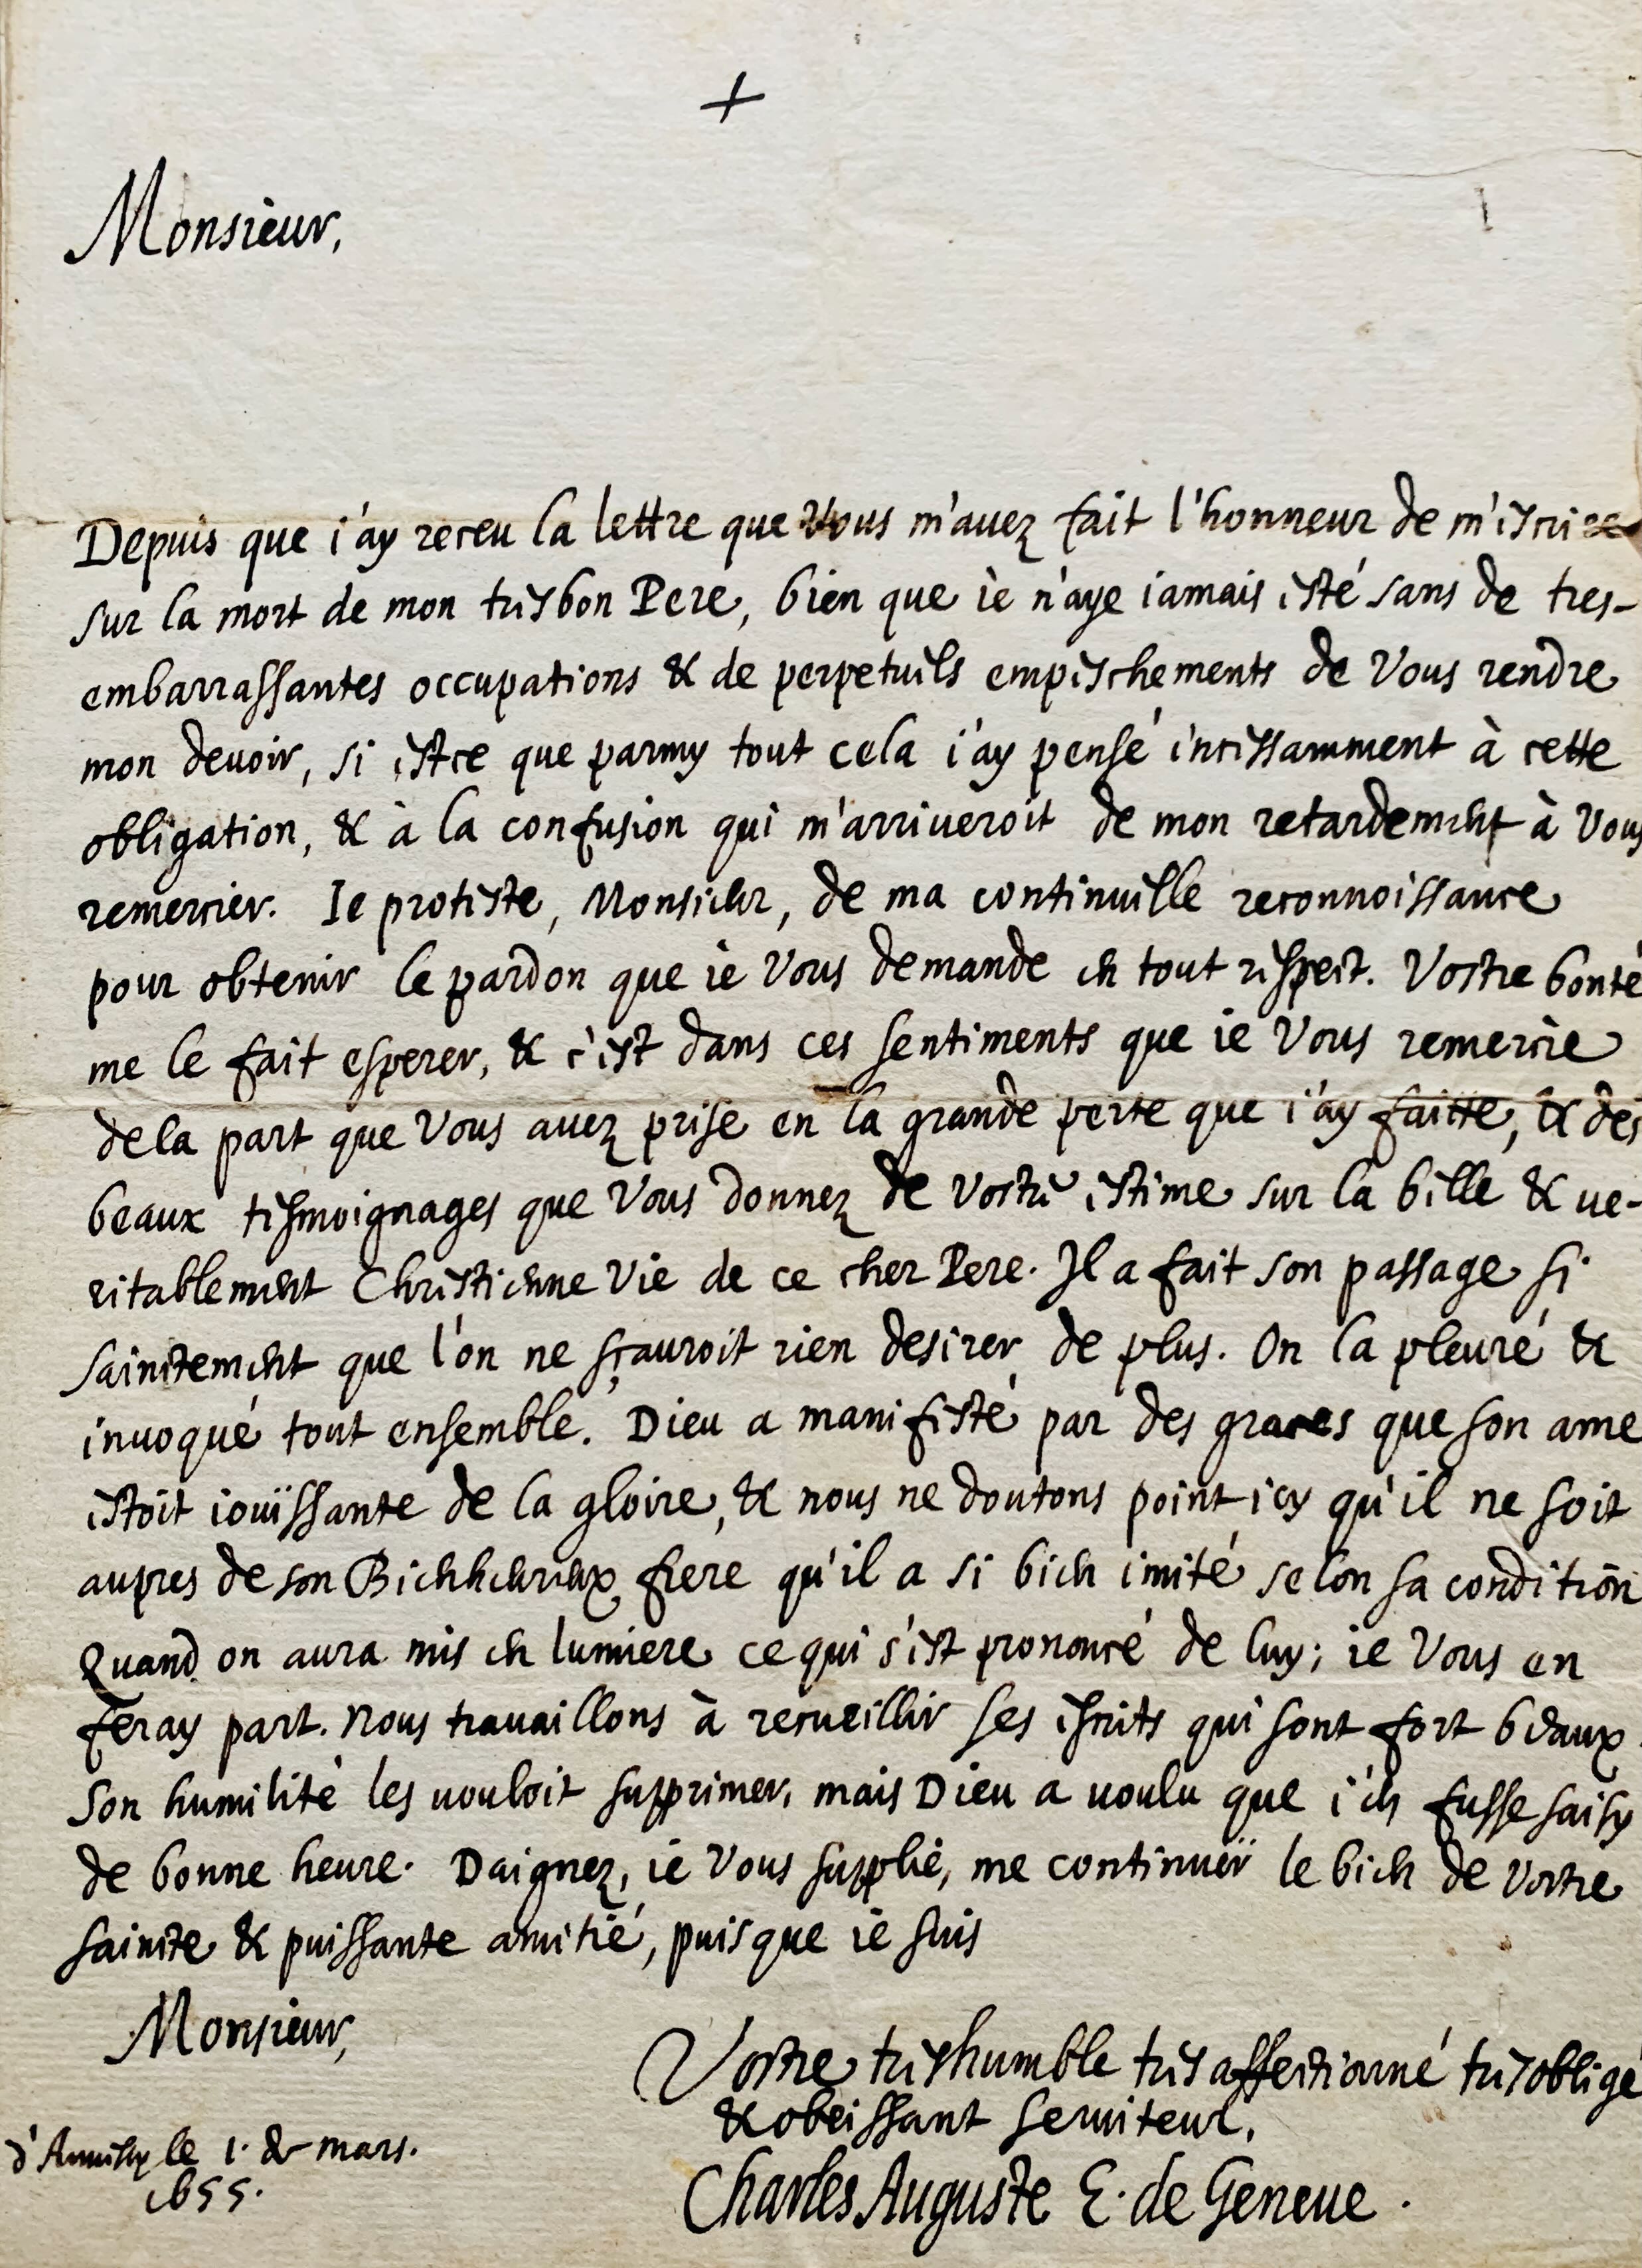 +
Monsieur,
Depuis que i'ay receu la lettre que Vous m'auez fait l'honneur de m'escrire
sur la mort de mon tresbon Pere, bien que ie n'aye iamais esté sans de tres-
embarrassantes occupations & de perpetuels empeschements de Vous rendre
mon deuoir, si estce que parmy tout cela i'ay pensé incessamment à cette
obligation, & à la confusion qui m'arriueroit de mon retardement à Vous
remercier. Ie proteste, Monsieur, de ma continuelle reconnoissance
pour obtenir le pardon que ie Vous demande en tout respect. Vostre bonté
me le fait esperer, & c'est dans ces sentiments que ie Vous remercie
dela part que Vous auez prise en la grande perte que i'ay faitte, & des
beaux tesmoignages que Vous donnez de Vostre estime sur la belle & ue-
ritablement Chrestienne Vie de ce cher Pere. Il a fait son passage si
sainctement que l'on ne sçauroit rien desirer de plus. On la pleuré &
inuoqué tout ensemble. Dieu a manifesté par des graces que son ame
estoit iouïssante de la gloire, & nous ne doutons point icy qu'il ne soit
aupres de son Bienheureux frere qu'il a si bien imité selon sa condition
Quand on aura mis en lumiere ce qui s'est prononcé de luy; ie Vous en
feray part. Nous trauaillons à recueillir ses escrits qui sont fort beaux.
Son humilité les uouloit supprimer, mais Dieu a uoulu que i'en fusse saisy
de bonne heure. Daignez, ie Vous supplie, me continuër le bien de Vostre
saincte & puissante amitié, puisque ie suis
Monsieur,
Vostre treshumble tresaffectionné tresobligé
& obeissant seruiteur,
d'Annessy le 1. de mars.
1655.
Charles Auguste E. de Geneue.